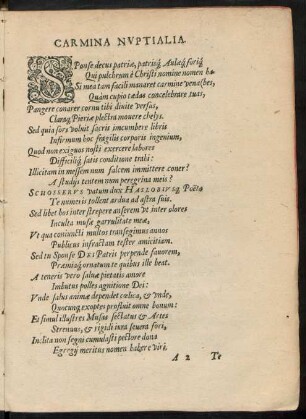 CARMINA NVPTIALIA.
SPonse decus patriæ, patriæq́; Aulæq́; foriq́;
Qui pulchrum è Christi nomine nomen ha-
Si mea tam facili manaret carmine vena, (bes,
Quàm cupio tædas concelebrare tuas,
Pangere conarer cornu tibi diuite versus,
Claraq́; Pieriæ plectra mouere chelys.
Sed quia sors voluit sacris incumbere libris
Infirmum hoc fragilis corporis ingenium,
Quod non exiguos nosti exercere labores
Difficiliq́; satis conditione trahi:
Illicitam in messem num falcem immittere coner?
A studijs tentem num peregrina meis?
SCHOSSERVS vatum dux HASLOBIVSq́; Poëta
Te numeris tollent ardua ad astra suis.
Sed libet hos inter strepere anserem vt inter olores
Inculta musæ garrulitate meæ,
Vt qua coniuncti multos transegimus annos
Publicus insectam tester amicitiam.
Sed tu Sponse DEI Patris perpende fauorem,
Præmiaq́; ornatum te quibus ille beat.
A teneris vero saluæ pietatis amore
Imbutus polles agnitione Dei:
Vnde salus animæ dependet cœlica, & vnde,
Quocunq; exoptes prosiluit omne bonum:
Et simul illustres Musas sectatus & Artes
Strenuus, & rigidi iura seuera foci,
Inclita non segni cumulasti pectore dona
Egregij meritus nomen habere viri.
A 2 Te